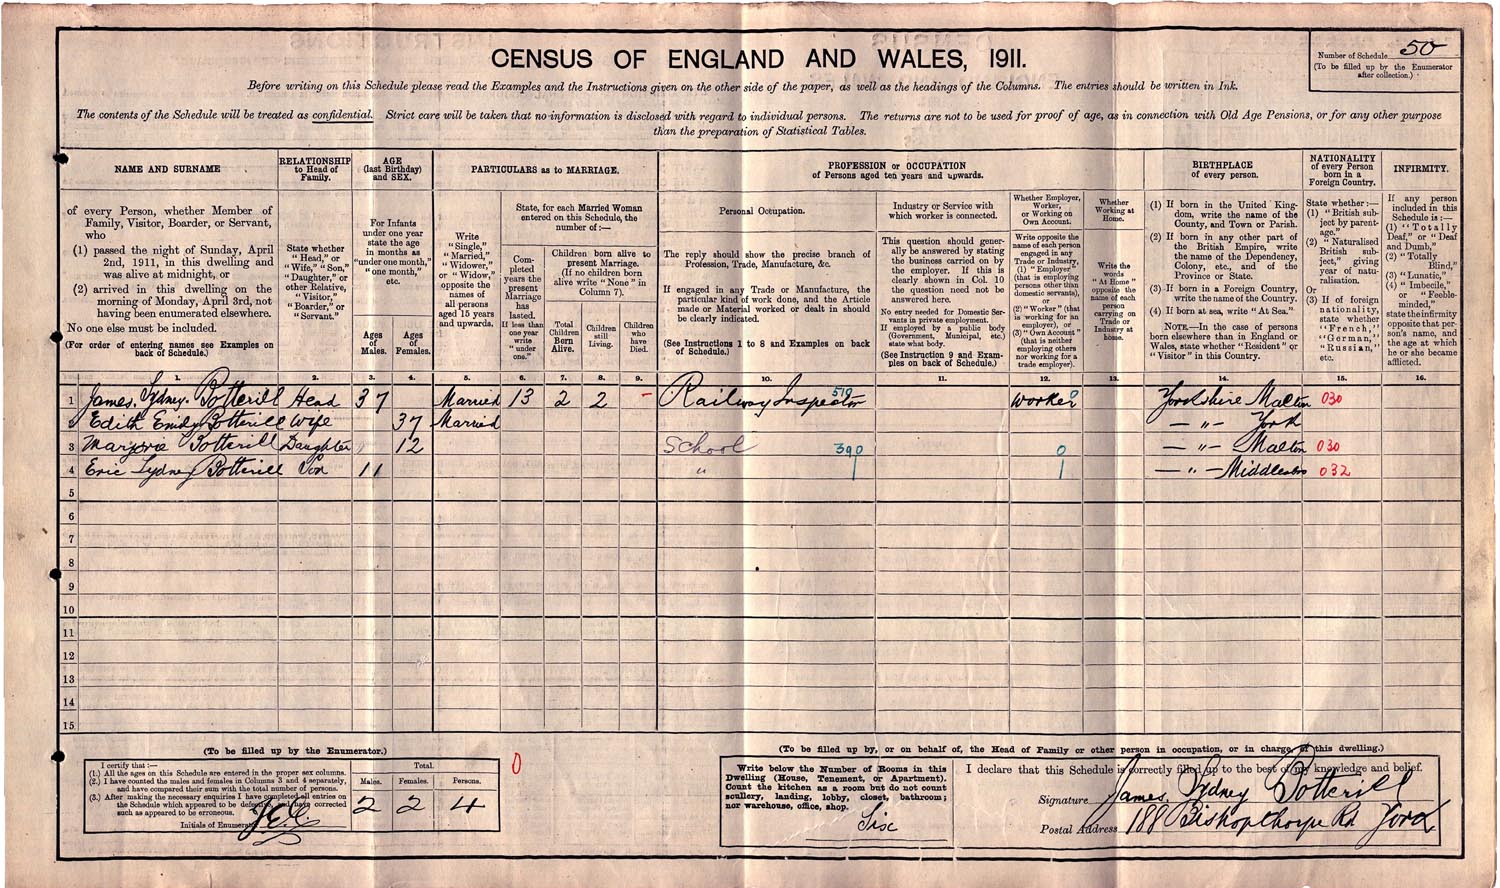 CENSUS OF ENGLAND AND WALES, 1911.
Number of Schedule 50
(To be filled up by the Enumerator
after collection.)
Before writing on this Schedule please read the Examples and the Instructions given on the other side of the paper, as well as the headings of the Columns. The entries should be written in Ink.
The contents of the Schedule will be treated as confidential. Strict care will be taken that no information is disclosed with regard to individual persons. The returns are not to be used for proof of age, as in connection with Old Age Pensions, or for any other purpose
than the preparation of Statistical Tables.
NAME AND SURNAME
of every Person, whether Member of
Family, Visitor, Boarder, or Servant,
who
(1) passed the night of Sunday, April
2nd, 1911, in this dwelling and
was alive at midnight, or
(2) arrived in this dwelling on the
morning of Monday, April 3rd, not
having been enumerated elsewhere.
No one else must be included.
(For order of entering names see Examples on
back of Schedule.)
RELATIONSHIP
to Head of
Family.
State whether
"Head," or
"Wife," "Son,"
"Daughter," or
other Relative,
"Visitor,"
"Boarder," or
"Servant."
AGE
(last Birthday)
and SEX.
For Infants
under one year
state the age
in months as
"under one month,"
"one month,"
etc.
Ages
of
Males.
Ages
of
Females.
PARTICULARS as to MARRIAGE.
Write
"Single,"
"Married,"
"Widower,"
or "Widow,"
opposite the
names of
all persons
aged 15 years
and upwards.
State, for each Married Woman
entered on this Schedule, the
number of:—
Com-
pleted
years the
present
Marriage
has
lasted.
If less than
one year
write
"under
one."
Children born alive to
present Marriage.
(If no children born
alive write "None" in
Column 7).
Total
Children
Born
Alive.
Children
still
Living.
Children
who
have
Died.
PROFESSION or OCCUPATION
of Persons aged ten years and upwards.
Personal Occupation.
The reply should show the precise branch of
Profession, Trade, Manufacture, &c.
If engaged in any Trade or Manufacture, the
particular kind of work done, and the Article
made or Material worked or dealt in should
be clearly indicated.
(See Instructions 1 to 8 and Examples on back
of Schedule.)
Industry or Service with
which worker is connected.
This question should gener-
ally be answered by stating
the business carried on by
the employer. If this is
clearly shown in Col. 10
the question need not be
answered here.
No entry needed for Domestic Ser-
vants in private employment.
If employed by a public body
(Government, Municipal, etc.)
state what body.
(See Instruction 9 and Exam-
ples on back of Schedule.)
Whether Employer,
Worker,
or Working on
Own Account.
Write opposite the
name of each person
engaged in any
Trade or Industry,
(1) "Employer"
(that is employing
persons other than
domestic servants),
or
(2) "Worker" (that
is working for an
employer), or
(3) "Own Account"
(that is neither
employing others
nor working for a
trade employer).
Whether
Working at
Home.
Write the
words
"At Home"
opposite the
name of each
person
carrying on
Trade or
Industry at
home.
BIRTHPLACE
of every person.
(1) If born in the United King-
dom, write the name of the
County, and Town or Parish.
(2) If born in any other part of
the British Empire, write
the name of the Dependency,
Colony, etc., and of the
Province or State.
(3) If born in a Foreign Country,
write the name of the Country.
(4) If born at sea, write "At Sea."
NOTE.—In the case of persons
born elsewhere than in England or
Wales, state whether "Resident" or
"Visitor" in this Country.
NATIONALITY
of every Person
born in a
Foreign Country.
State whether:—
(1) "British sub-
ject by parent-
age."
(2) "Naturalised
British sub-
ject," giving
year of natu-
ralisation.
Or
(3) If of foreign
nationality,
state whether
"French,"
"German,"
"Russian,"
etc.
INFIRMITY.
If any person
included in this
Schedule is:—
(1) "Totally
Deaf," or "Deaf
and Dumb,"
(2) "Totally
Blind,"
(3) "Lunatic,"
(4) "Imbecile,"
or "Feeble-
minded,"
state the infirmity
opposite that per-
son's name, and
the age at which
he or she became
afflicted.
1. 2. 3. 4. 5. 6. 7. 8. 9. 10. 11. 12. 13. 14. 15. 16.
1 James Sydney Botterill Head 37 Married 13 2 2 – Railway Inspector 510 Worker 0 Yorkshire Malton 030
2 Edith Emily Botterill Wife 37 Married — " — York
3 Marjorie Botterill Daughter 12 School 390 0 — " — Malton 030
4 Eric Sydney Botterill Son 11 " — " — Middlesbro 032
5
6
7
8
9
10
11
12
13
14
15
(To be filled up by the Enumerator.)
I certify that:—
(1.) All the ages on this Schedule are entered in the proper sex columns.
(2.) I have counted the males and females in Columns 3 and 4 separately,
and have compared their sum with the total number of persons.
(3.) After making the necessary enquiries I have completed all entries on
the Schedule which appeared to be defective, and have corrected
such as appeared to be erroneous.
Initials of Enumerator
Total.
Males. Females. Persons.
2 2 4
0
(To be filled up by, or on behalf of, the Head of Family or other person in occupation, or in charge, of this dwelling.)
Write below the Number of Rooms in this
Dwelling (House, Tenement, or Apartment).
Count the kitchen as a room but do not count
scullery, landing, lobby, closet, bathroom;
nor warehouse, office, shop.
Six
I declare that this Schedule is correctly filled up to the best of my knowledge and belief.
Signature James Sydney Botterill
Postal Address 188 Bishopthorpe Rd York